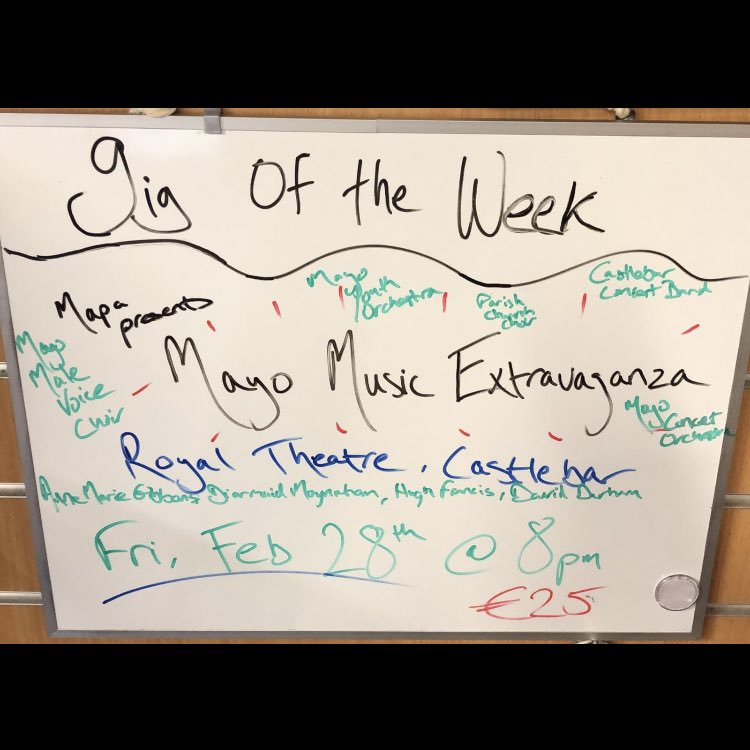 Gig Of the Week
Mapa
presents
Mayo
Youth
Orchestra
Parish
Church
Choir
Castlebar
Concert Band
Mayo
Male
Voice
Choir
Mayo Music Extravaganza
Mayo
Concert
Orchestra
Royal Theatre, Castlebar
Anne Marie Gibbons, Diarmaid Moynihan, Hugh Francis, David Durham
Fri, Feb 28th @ 8pm
€25